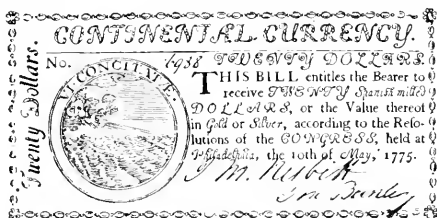 CONTINENTAL CURRENCY.
Twenty Dollars.
No. 6938 TWENTY DOLLARS.
VI CONCITATÆ.
THIS BILL entitles the Bearer to
receive TWENTY Spanish milled
DOLLARS, or the Value thereof
in Gold or Silver, according to the Reso-
lutions of the CONGRESS, held at
Philadelphia, the 10th of May, 1775.
J M. Nesbitt